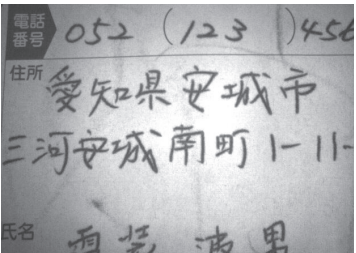 電話番号 052 (123)456
住所 愛知県安城市
三河安城南町1-11-
氏名